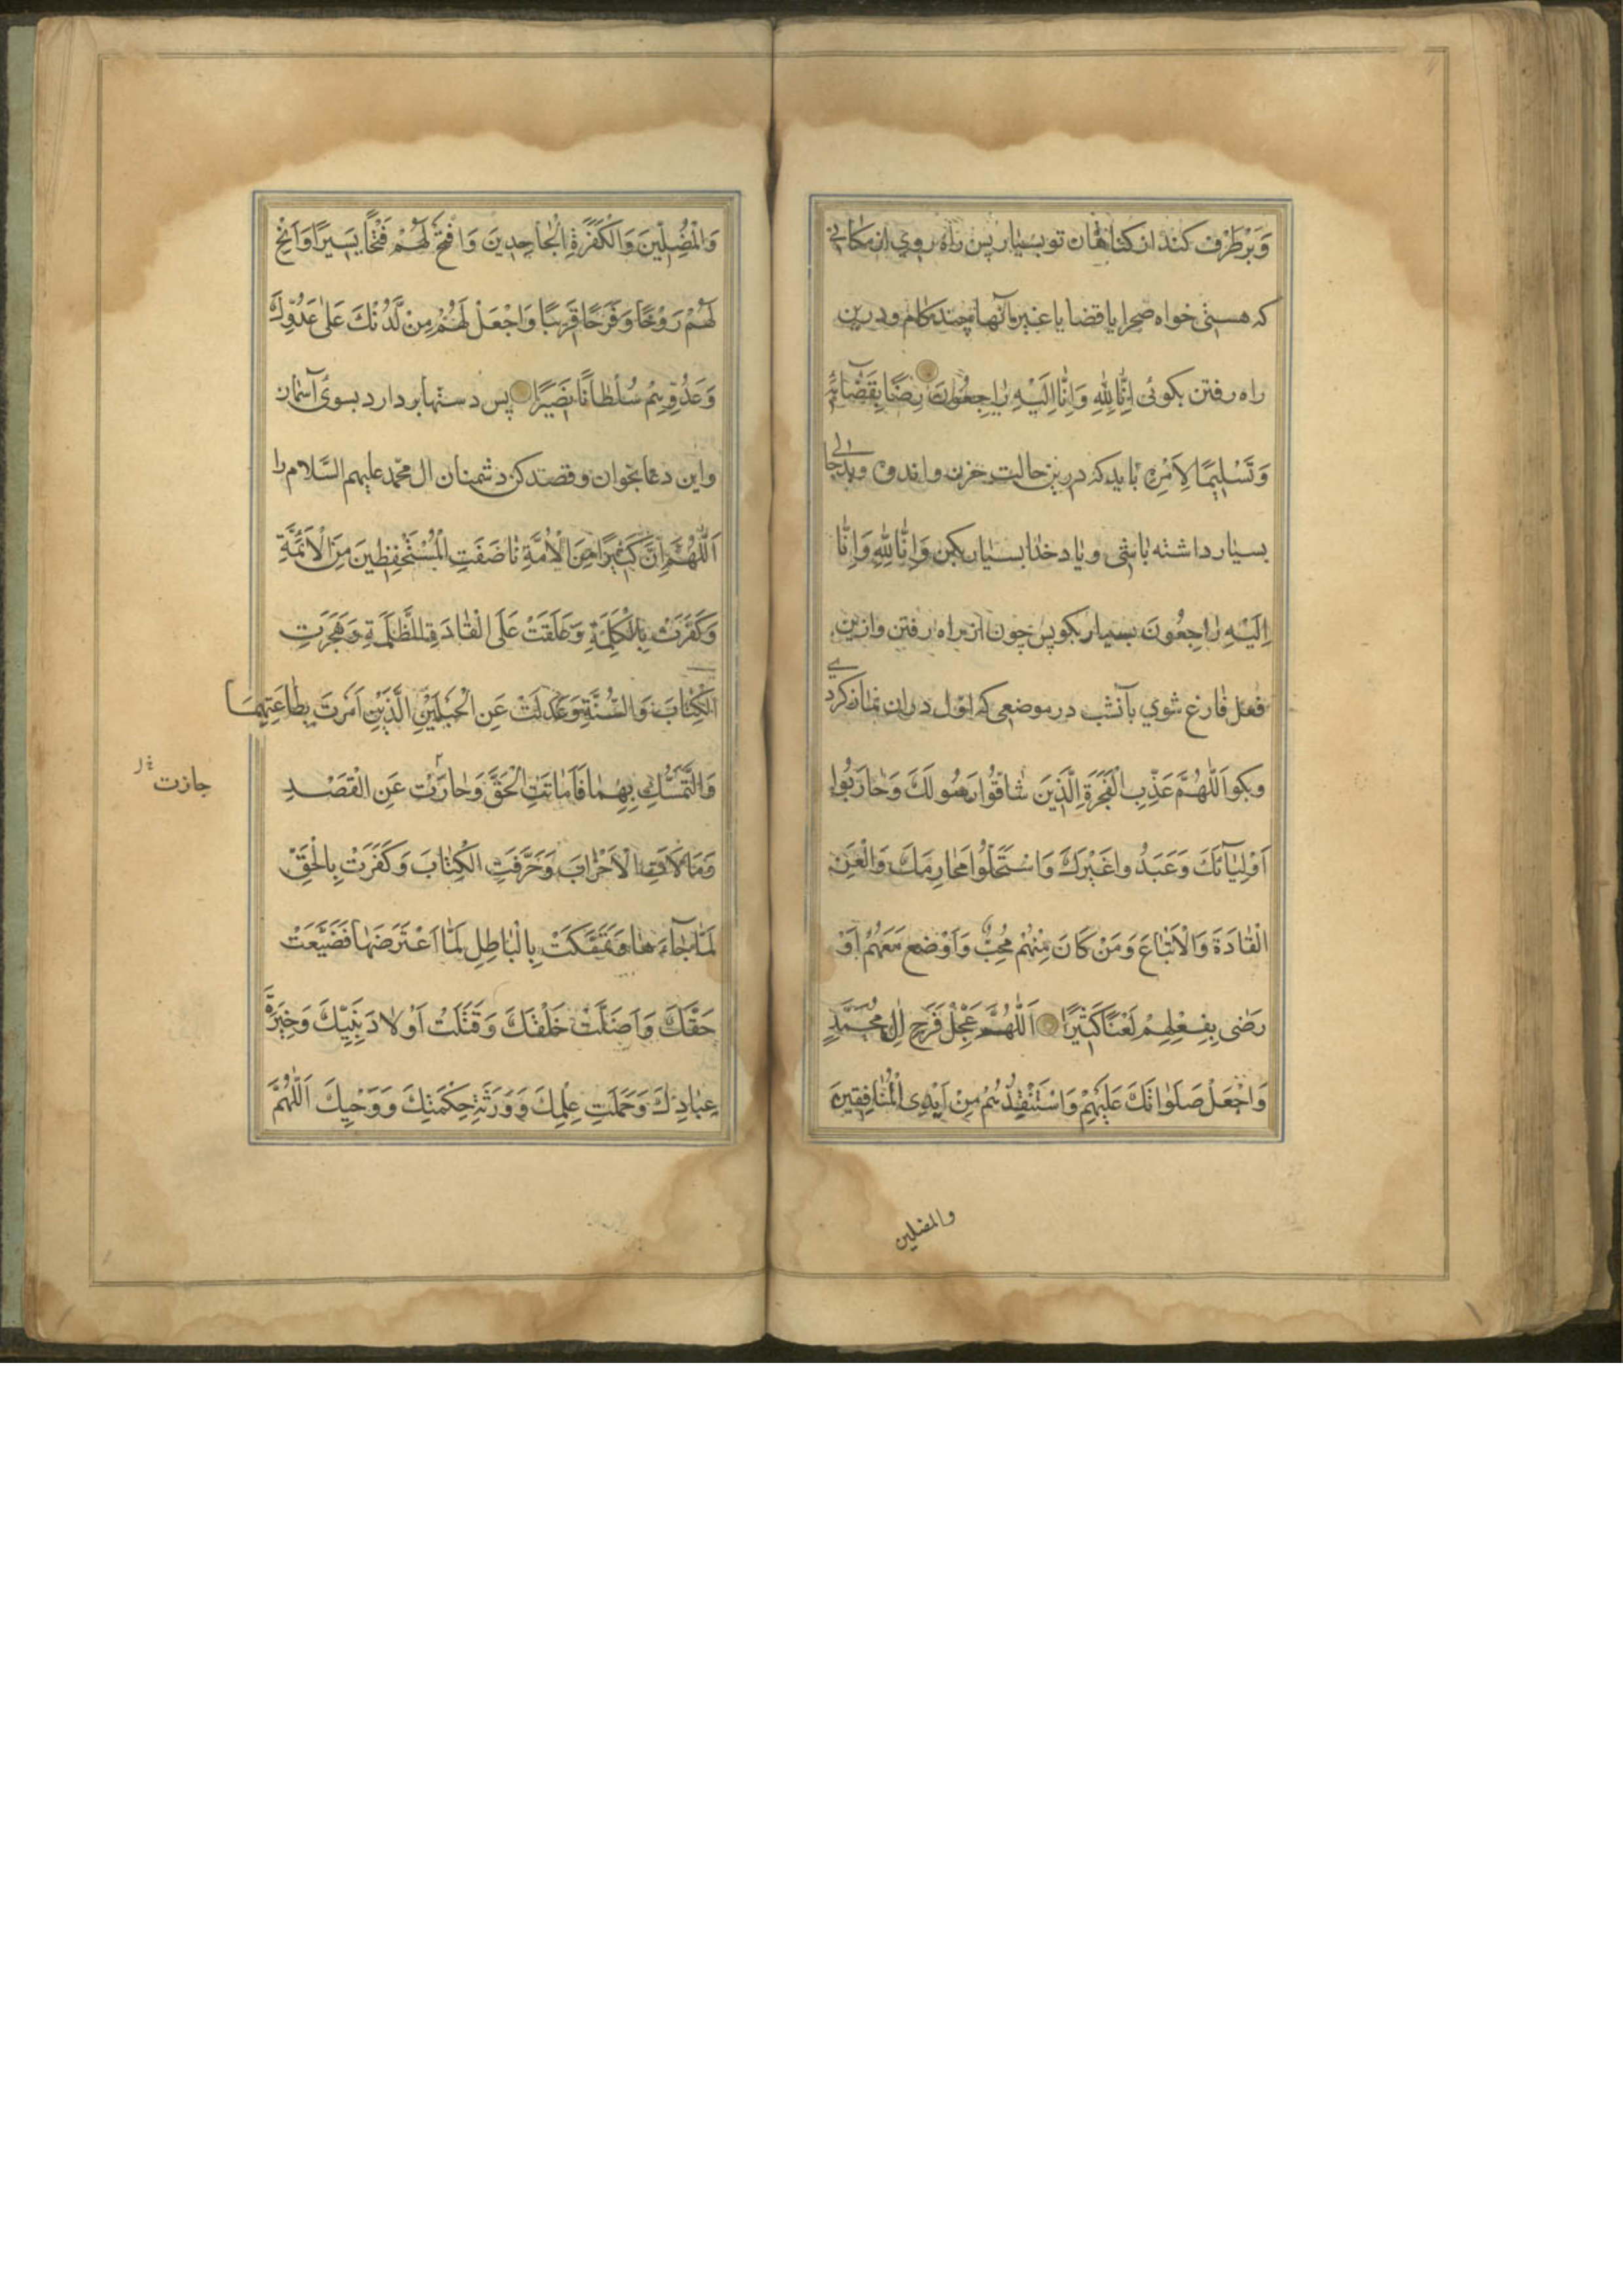 وَبَرْطَرْف كند از كناهان تو بسيار پس راه روي از مكاني
كه هستى خواه صحرا يا فضا يا غير آنها چند كام و درين
راه رفتن بكوئى اِنّٰا لِلّٰهِ وَاِنّٰا اِلَيْهِ رٰاجِعُونَ رِضًا بِقَضٰائِهِ
وَتَسْلِيمًا لِاَمْرِهِ بايد كه درين حالت حزن و اندوه
بسيار داشته باشى و ياد خدا بسيار بكن وَاِنّٰا لِلّٰهِ وَاِنّٰا
اِلَيْهِ رٰاجِعُونَ بسيار بكو پس چون از راه رفتن و ازين
فعل فارغ شوي بآنشب در موضعى كه اول در ان نماز كردے
وبكو اَللّٰهُمَّ عَذِّبِ الْفَجَرَةَ الَّذِينَ شٰاقُّوا رَسُولَكَ وَحٰارَبُوا
اَوْلِيٰآئَكَ وَعَبَدُوا غَيْرَكَ وَاسْتَحَلُّوا مَحٰارِمَكَ وَالْعَنِ
الْقٰادَةَ وَالْاَتْبٰاعَ وَمَنْ كٰانَ مِنْهُمْ مُحِبٌّ وَاَوْضَعَ مَعَهُمْ اَوْ
رَضٰى بِفِعْلِهِمْ لَعْنًا كَثِيرًا اَللّٰهُمَّ عَجِّلْ فَرَجَ اٰلِ مُحَمَّدٍ
وَاجْعَلْ صَلَوٰاتَكَ عَلَيْهِمْ وَاسْتَنْقِذْهُمْ مِنْ اَيْدِى الْمُنٰافِقِينَ
والمضلين
وَالْمُضِلّٖينَ وَالْكَفَرَةِ الْجٰاحِدِينَ وَافْتَحْ لَهُمْ فَتْحًا يَسِيرًا وَاَتِحْ
لَهُمْ رَوْحًا وَفَرَجًا قَرِيبًا وَاجْعَلْ لَهُمْ مِنْ لَّدُنْكَ عَلٰى عَدُوِّكَ
وَعَدُوِّهِمْ سُلْطٰانًا نَصِيرًا پس دستها بردارد بسوى آسمان
واين دعا بخوان و قصد كن دشمنان ال محمد عليهم السّلام را
اَللّٰهُمَّ اِنَّ كَثِيرًا مِنَ الْاُمَّةِ نٰاصَفَتِ الْمُسْتَحْفِظِينَ مِنَ الْاَئِمَّةِ
وَكَفَرَتْ بِالْكَلِمَةِ وَعَلَقَتْ عَلَى الْقٰادَةِ الظَّلَمَةِ وَهَجَرَتِ
الْكِتٰابَ وَالسُّنَّةَ وَعَدَلَتْ عَنِ الْحَبْلَيْنِ الَّذَيْنِ اَمَرْتَ بِطٰاعَتِهِمَا
وَالتَّمَسُّكِ بِهِمٰا فَاَمٰاتَتِ الْحَقَّ وَحٰارَتْ عَنِ الْقَصْدِ
جازت
وَمٰالَاَتِ الْاَحْزٰابَ وَحَرَّفَتِ الْكِتٰابَ وَكَفَرَتْ بِالْحَقِّ
لَمّٰا جٰآءَهٰا وَتَمَسَّكَتْ بِالْبٰاطِلِ لَمَّا اعْتَرَضَهٰا فَضَيَّعَتْ
حَقَّكَ وَاَضَلَّتْ خَلْقَكَ وَقَتَلَتْ اَوْلٰادَ نَبِيِّكَ وَخِيَرَةَ
عِبٰادِكَ وَحَمَلَتِ عِلْمِكَ وَوَرَثَةِ حِكْمَتِكَ وَوَحْيِكَ اَللّٰهُمَّ